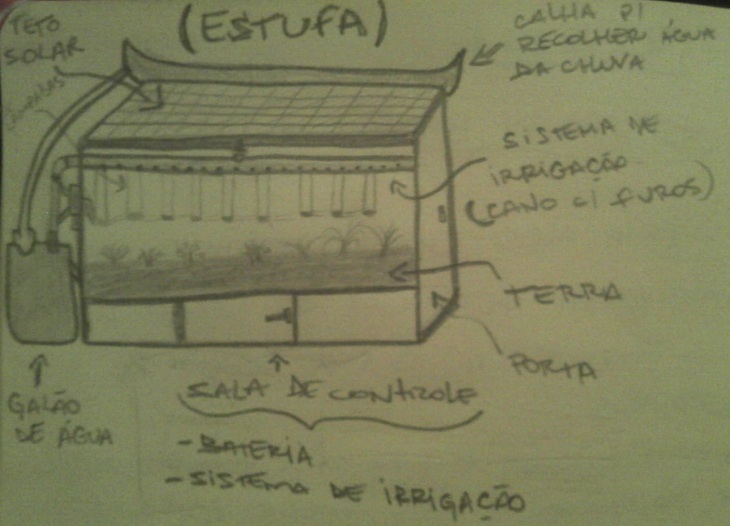 (ESTUFA)
TETO
SOLAR
LÂMPADAS
CALHA P/
RECOLHER ÁGUA
DA CHUVA
SISTEMA DE
IRRIGAÇÃO
(CANO C/ FUROS)
TERRA
PORTA
GALÃO
DE ÁGUA
SALA DE CONTROLE
- BATERIA
- SISTEMA DE IRRIGAÇÃO